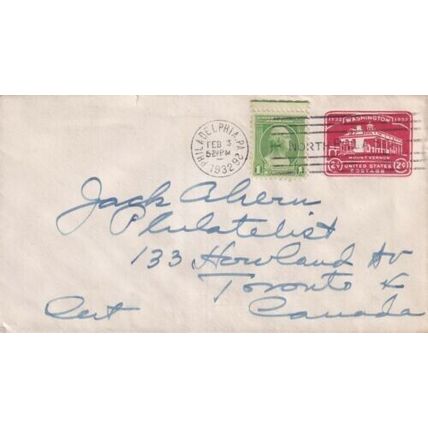 PHILADELPHIA, PA.
FEB 3
5 PM
1932
NORTH
1
1732 WASHINGTON 1932
MOUNT VERNON
2¢ UNITED STATES 2¢
POSTAGE
Jack Ahern
Philatelist
133 Howland Av
Toronto
Canada